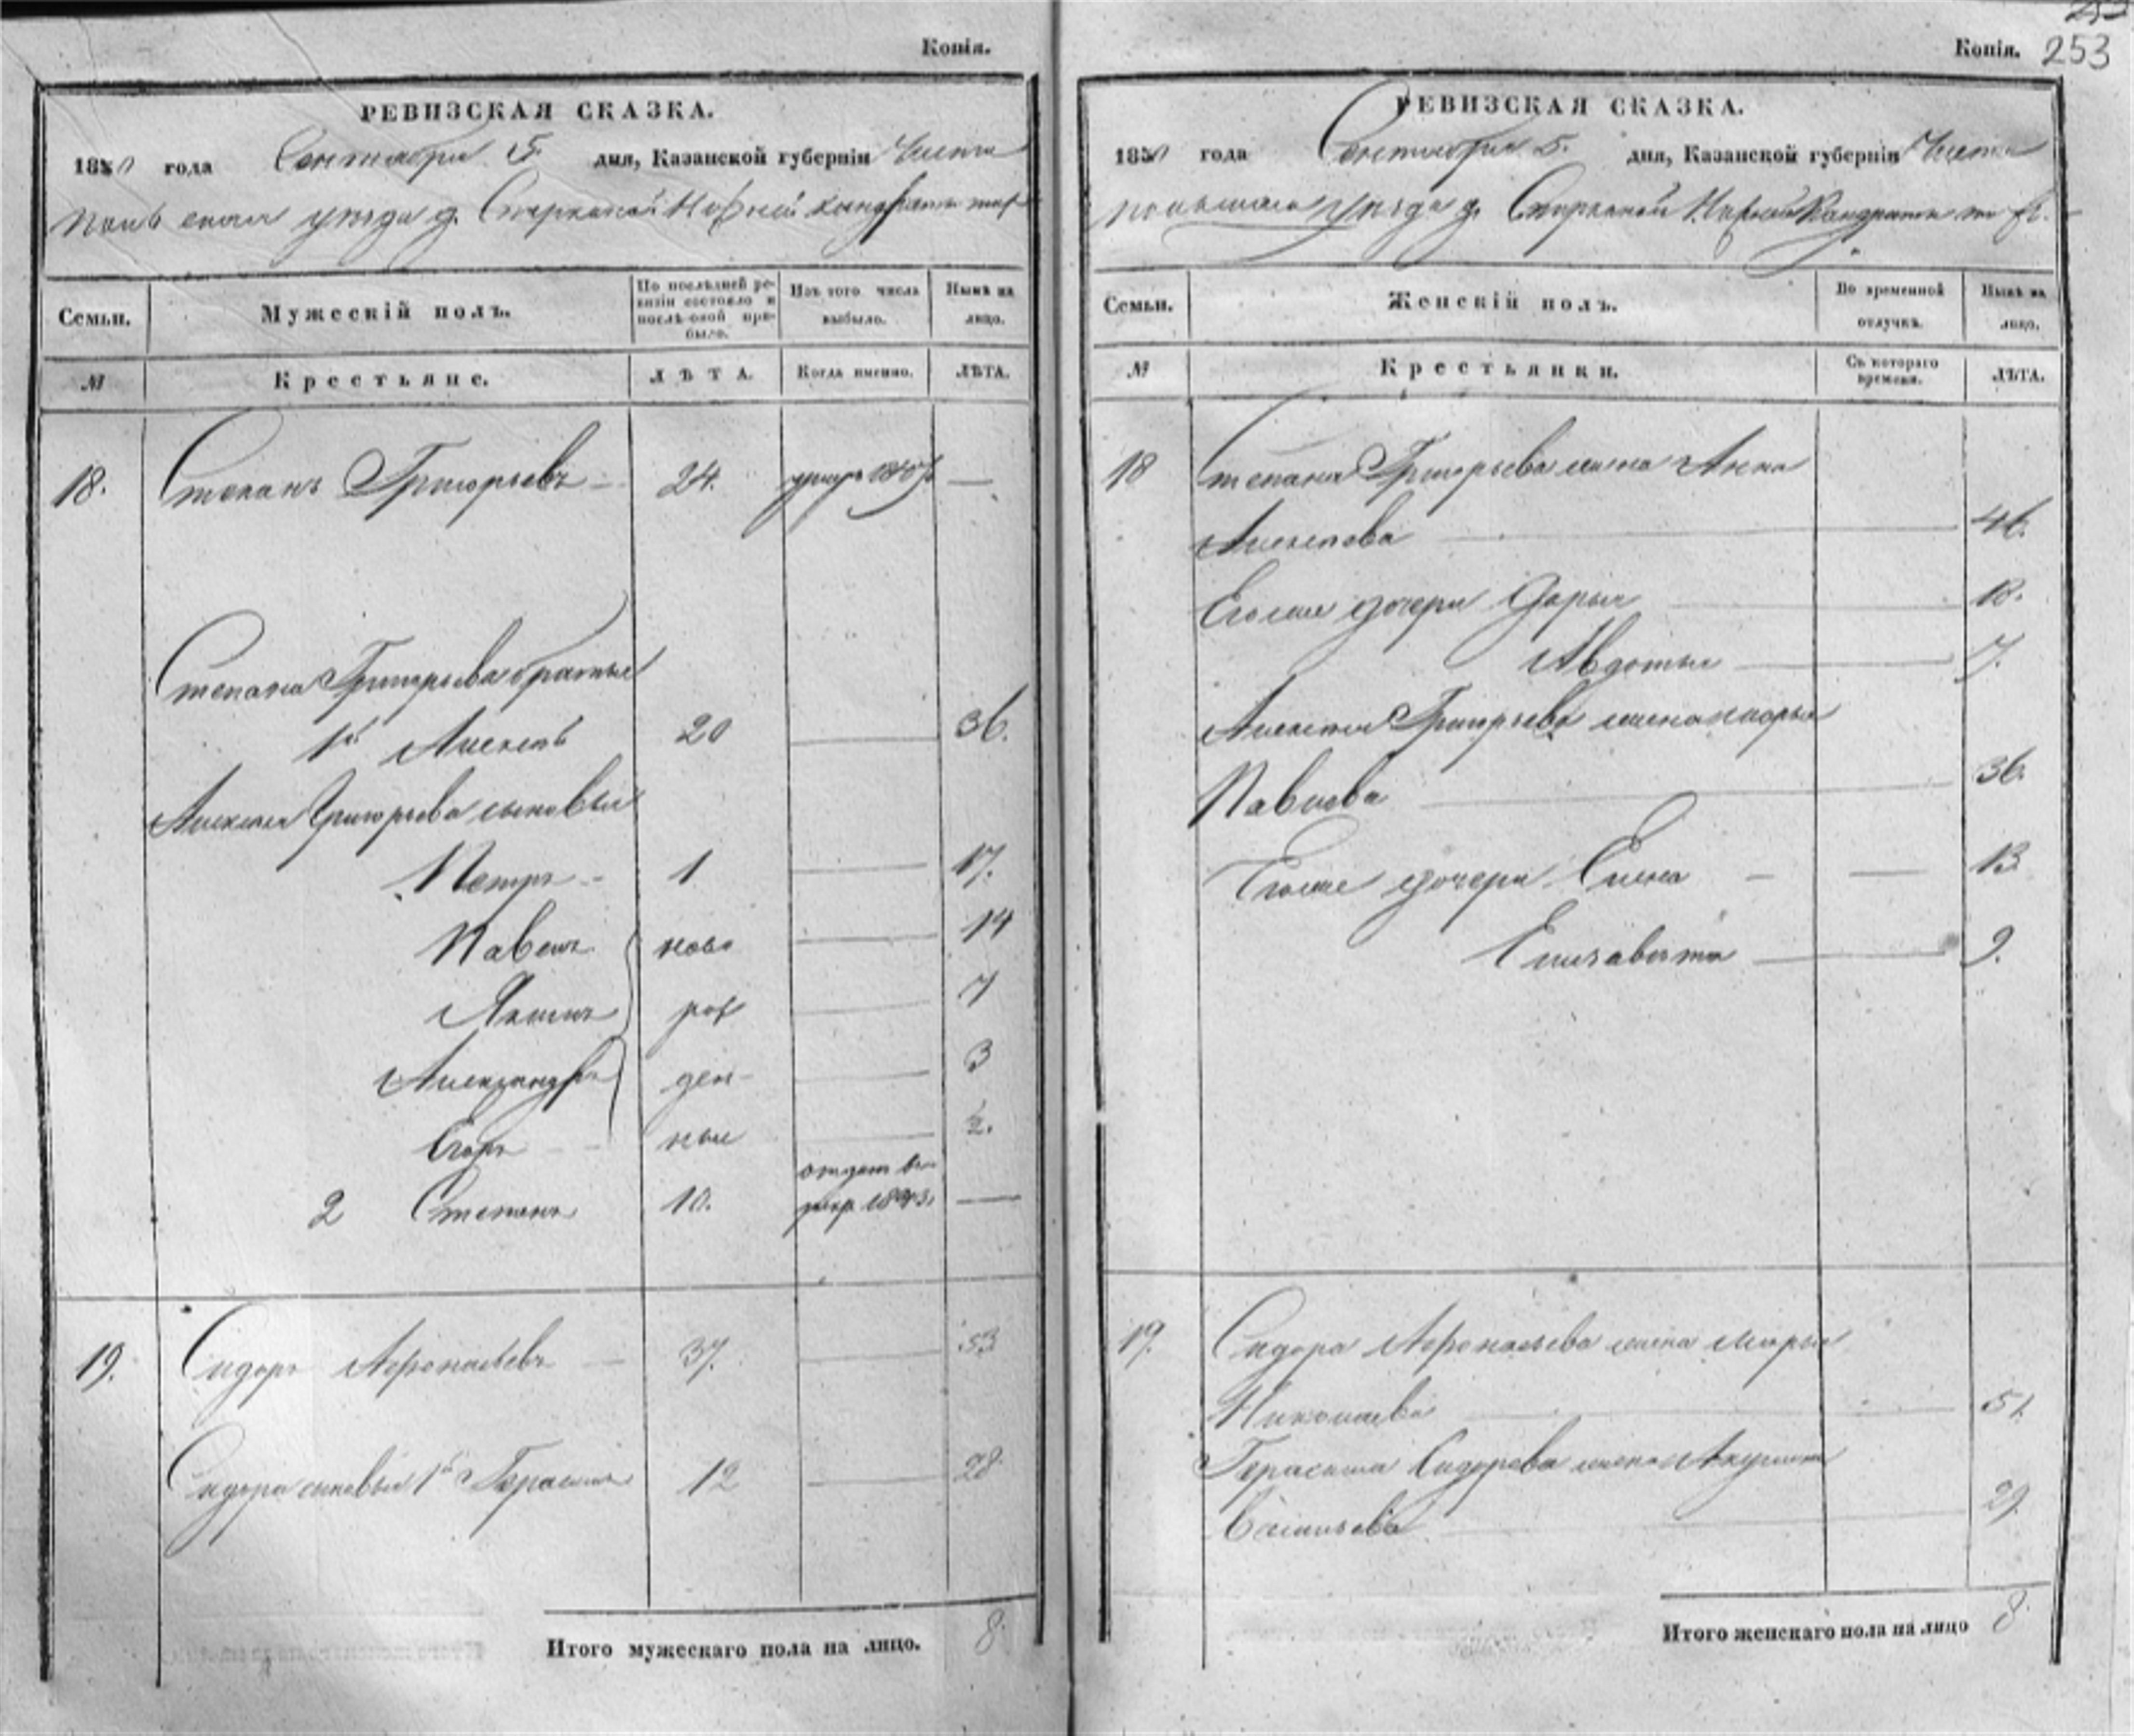 Копія.
РЕВИЗСКАЯ СКАЗКА.
1850 года Сентября 5 дня, Казанской губерніи Чисто
польскаго уѣзда д.
Семьи. Мужескій полъ. По послѣдней ревизіи состояло и послѣ оной прибыло. Изъ того числа выбыло. Нынѣ на лицо.
№ Крестьяне. ЛѢТА. Когда именно. ЛѢТА.
18. Степанъ Григорьевъ 24. —
Степана Григорьева братья
1й Алексѣй 20 — 36.
Алексѣя Григорьева сыновья
Петръ 1 — 17.
Павелъ ново — 14
рож — 7
Александръ ден — 3
Егоръ ные — ½.
2 Степанъ 10. отданъ въ рекр 1843. —
19. Сидоръ Афонасьевъ 37. — 53
Сидора сыновья 1й Герасимъ 12 — 28
Итого мужескаго пола на лицо. 8.
253
Копія.
РЕВИЗСКАЯ СКАЗКА.
1850 года Сентября 5. дня, Казанской губерніи Чисто
польскаго уѣзда д.
Семьи. Женскій полъ. Во временной отлучкѣ. Нынѣ на лицо.
№ Крестьянки. Съ котораго времени. ЛѢТА.
18 Степана Григорьева жена Анна
Алексѣева — 46.
Его же дочери Дарья — 18.
Авдотья — 7.
Алексѣя Григорьева жена
Павлова — 36.
Его же дочери Елена — — 13
Елизавета — 9.
19. Сидора Афонасьева жена Марья
Николаева — 51.
Герасима Сидорова жена Акулина
Васильева — 29.
Итого женскаго пола на лицо 8.